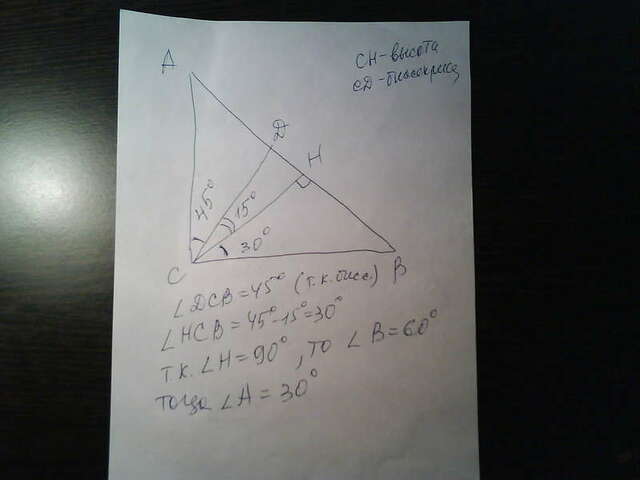 CH-высота
CD-биссектриса
A
D
H
45°
15°
30°
C
B
∠DCB=45° (т.к.бисс.)
∠HCB=45°-15°=30°
т.к.∠H=90°, то ∠B=60°
тогда ∠A=30°